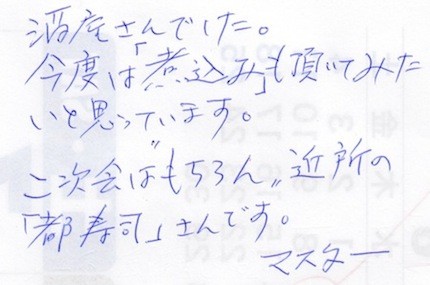 酒産さんでした。
今度は「煮込み」も頂いてみた
いと思っています。
二次会は"もちろん"近所の
「都寿司」さんです。
マスター